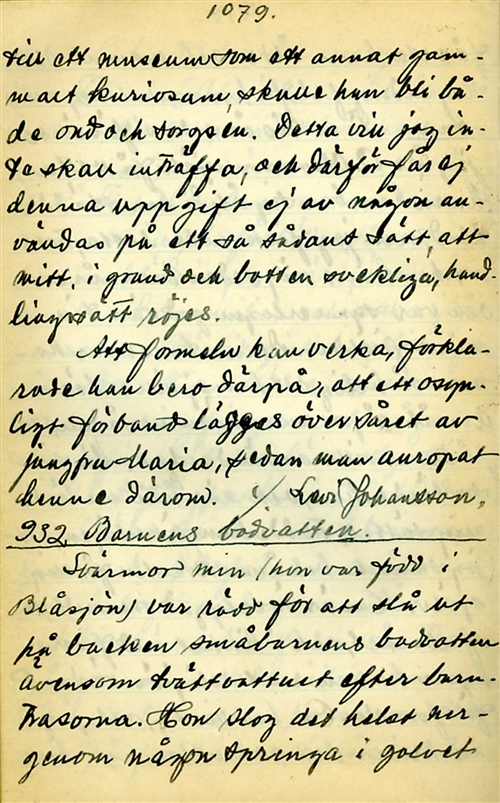 1079.
till ett museum som ett annat gam-
malt kuriosum, skulle hun bli bå-
de ond och sorgsen. Detta vill jag in-
te skall inträffa, och därför får ej
denna uppgift ej av någon an-
vändas på ett så sådant sätt, att
mitt, i grund och botten svekliga, hand-
lingssätt röjes.
Att formeln kan verka, förkla-
rade hun bero därpå, att ett osyn-
ligt förband lägges över såret av
jungfru Maria, sedan man anropat
henne därom. Levi Johansson.
932. Barnens badvatten.
Svärmor min (hon var född i
Blåsjön) var rädd för att slå ut
på backen småbarnens badvatten
ävensom tvättvattnet efter barn-
trasorna. Hon slog det helst ner-
genom någon springa i golvet